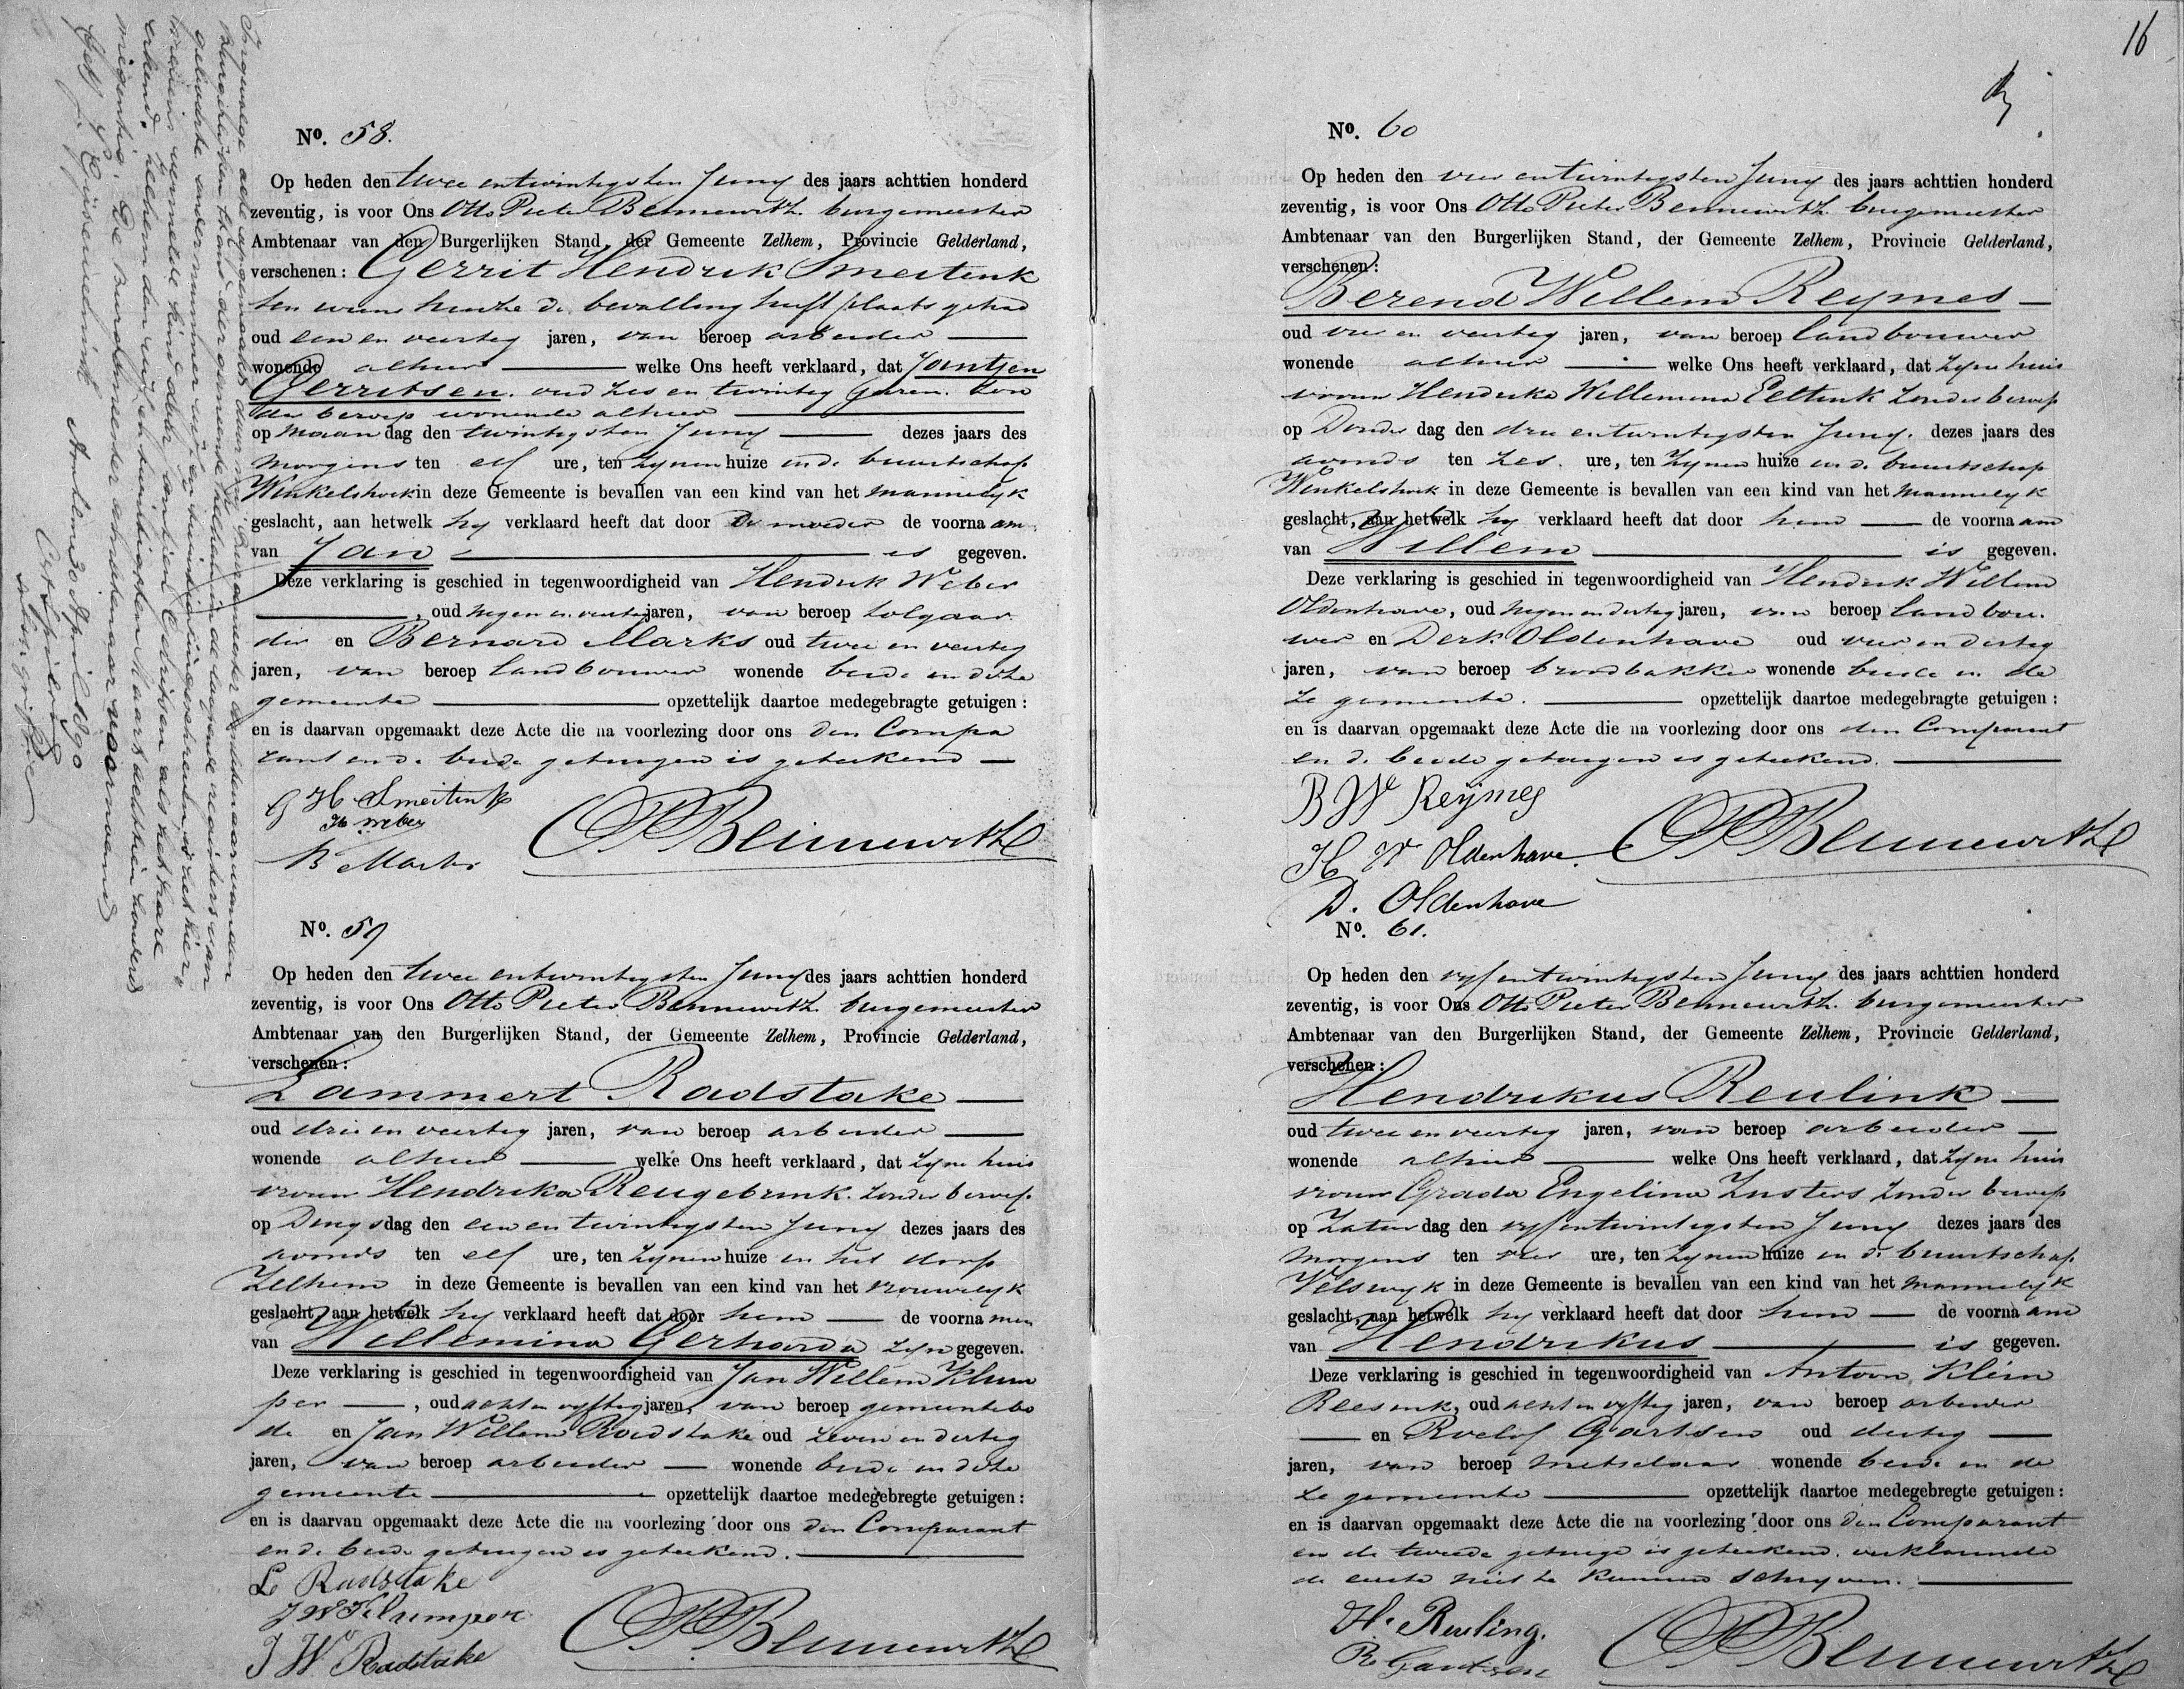 Ingevolge acte opgemaakt door den Burgemeester Ambtenaar van den
Burgerlijken Stand der gemeente in de loopende registers van
geboorte onder nummer
nevens vermelde kind door Jantjen Gerritsen als het hare
erkend. Zelhem den Maart achttien honderd
negentig. De Burgemeester ambtenaar voornoemd
(get) J. E. Eijssennebrink
Arnhem 30 April 1890
substgriffier
No. 58.
Op heden den twee entwintigsten Juny des jaars achttien honderd
zeventig, is voor Ons Otto Pieter Bennewith burgemeester
Ambtenaar van den Burgerlijken Stand, der Gemeente Zelhem, Provincie Gelderland,
verschenen: Gerrit Hendrik Smeitink
ten wiens huize de bevalling heeft plaats gehad
oud een en veertig jaren, van beroep arbeider
wonende alhier welke Ons heeft verklaard, dat Jantjen
Gerritsen oud zes en twintig jaren. zon
der beroep wonende alhier
op Maandag den twintigsten Juny dezes jaars des
morgens ten elf ure, ten zynen huize in de buurtschap
Winkelshoek in deze Gemeente is bevallen van een kind van het mannelyk
geslacht, aan hetwelk hy verklaard heeft dat door de moeder de voornaam
van Jan is gegeven.
Deze verklaring is geschied in tegenwoordigheid van Hendrik Weber
, oud negen en veertig jaren, van beroep tolgaar
der en Bernard Marks oud twee en veertig
jaren, van beroep landbouwer wonende beide in deze
gemeente opzettelijk daartoe medegebragte getuigen:
en is daarvan opgemaakt deze Acte die na voorlezing door ons den Compa
rant en de beide getuigen is geteekend
G H Smeitink
H weber
B Marks
OPBennewith
No. 59
Op heden den twee entwintigsten Juny des jaars achttien honderd
zeventig, is voor Ons Otto Pieter Bennewith burgemeester
Ambtenaar van den Burgerlijken Stand, der Gemeente Zelhem, Provincie Gelderland,
verschenen:
Lammert Radstake
oud drie en veertig jaren, van beroep arbeider
wonende alhier welke Ons heeft verklaard, dat zyne huis
vrouw Hendrika Reugebrink zonder beroep
op Dingsdag den een en twintigsten Juny dezes jaars des
avonds ten elf ure, ten zynen huize in het dorp
Zelhem in deze Gemeente is bevallen van een kind van het vrouwelyk
geslacht, aan hetwelk hy verklaard heeft dat door hem de voornamen
van Willemina Gerharda zyn gegeven.
Deze verklaring is geschied in tegenwoordigheid van Jan Willem Klum
per , oud acht en vyftig jaren, van beroep gemeentebo
de en Jan Willem Radstake oud zeven en dertig
jaren, van beroep arbeider wonende beide in deze
gemeente opzettelijk daartoe medegebregte getuigen:
en is daarvan opgemaakt deze Acte die na voorlezing door ons den Comparant
en de beide getuigen is geteekend.
L Radstake
J W Klumper
J W Radstake
OPBennewith
16
No. 60
Op heden den vier entwintigsten Juny des jaars achttien honderd
zeventig, is voor Ons Otto Pieter Bennewith burgemeester
Ambtenaar van den Burgerlijken Stand, der Gemeente Zelhem, Provincie Gelderland,
verschenen:
Berend Willem Reymes
oud vier en veertig jaren, van beroep landbouwer
wonende alhier welke Ons heeft verklaard, dat zyne huis
vrouw Henderika Willemina Eeltink zonder beroep
op Donderdag den drie entwintigsten Juny. dezes jaars des
avonds ten zes. ure, ten zynen huize in de buurtschap
Winkelshoek in deze Gemeente is bevallen van een kind van het mannelyk
geslacht, aan hetwelk hy verklaard heeft dat door hem de voornaam
van Willem is gegeven.
Deze verklaring is geschied in tegenwoordigheid van Hendrik Willem
Oldenhave, oud negen en dertig jaren, van beroep landbou
wer en Derk Oldenhave oud vier en dertig
jaren, van beroep broodbakker wonende beide in de
ze gemeente. opzettelijk daartoe medegebragte getuigen:
en is daarvan opgemaakt deze Acte die na voorlezing door ons den Comparant
en de beide getuigen is geteekend.
B W Reÿmes
H W Oldenhave.
D. Oldenhave
OPBennewith
No. 61.
Op heden den vyf entwintigsten Juny des jaars achttien honderd
zeventig, is voor Ons Otto Pieter Bennewith burgemeester
Ambtenaar van den Burgerlijken Stand, der Gemeente Zelhem, Provincie Gelderland,
verschenen:
Hendrikus Reulink
oud twee en veertig jaren, van beroep arbeider
wonende alhier welke Ons heeft verklaard, dat zyne huis
vrouw Grada Engelina Zusters zonder beroep
op Zaturdag den vyf entwintigsten Juny dezes jaars des
morgens ten vier ure, ten zynen huize in de buurtschap
Velswyk in deze Gemeente is bevallen van een kind van het mannelyk
geslacht, aan hetwelk hy verklaard heeft dat door hem de voornaam
van Hendrikus is gegeven.
Deze verklaring is geschied in tegenwoordigheid van Antoon Klein
Reesink, oud acht en vyftig jaren, van beroep arbeider
en Roelof Gartsen oud dertig
jaren, van beroep metselaar wonende beide in de
ze gemeente opzettelijk daartoe medegebregte getuigen:
en is daarvan opgemaakt deze Acte die na voorlezing door ons den Comparant
en de tweede getuige is geteekend. verklarende
de eerste niet te kunnen schryven.
H. Reuling.
R Gartsen
OPBennewith